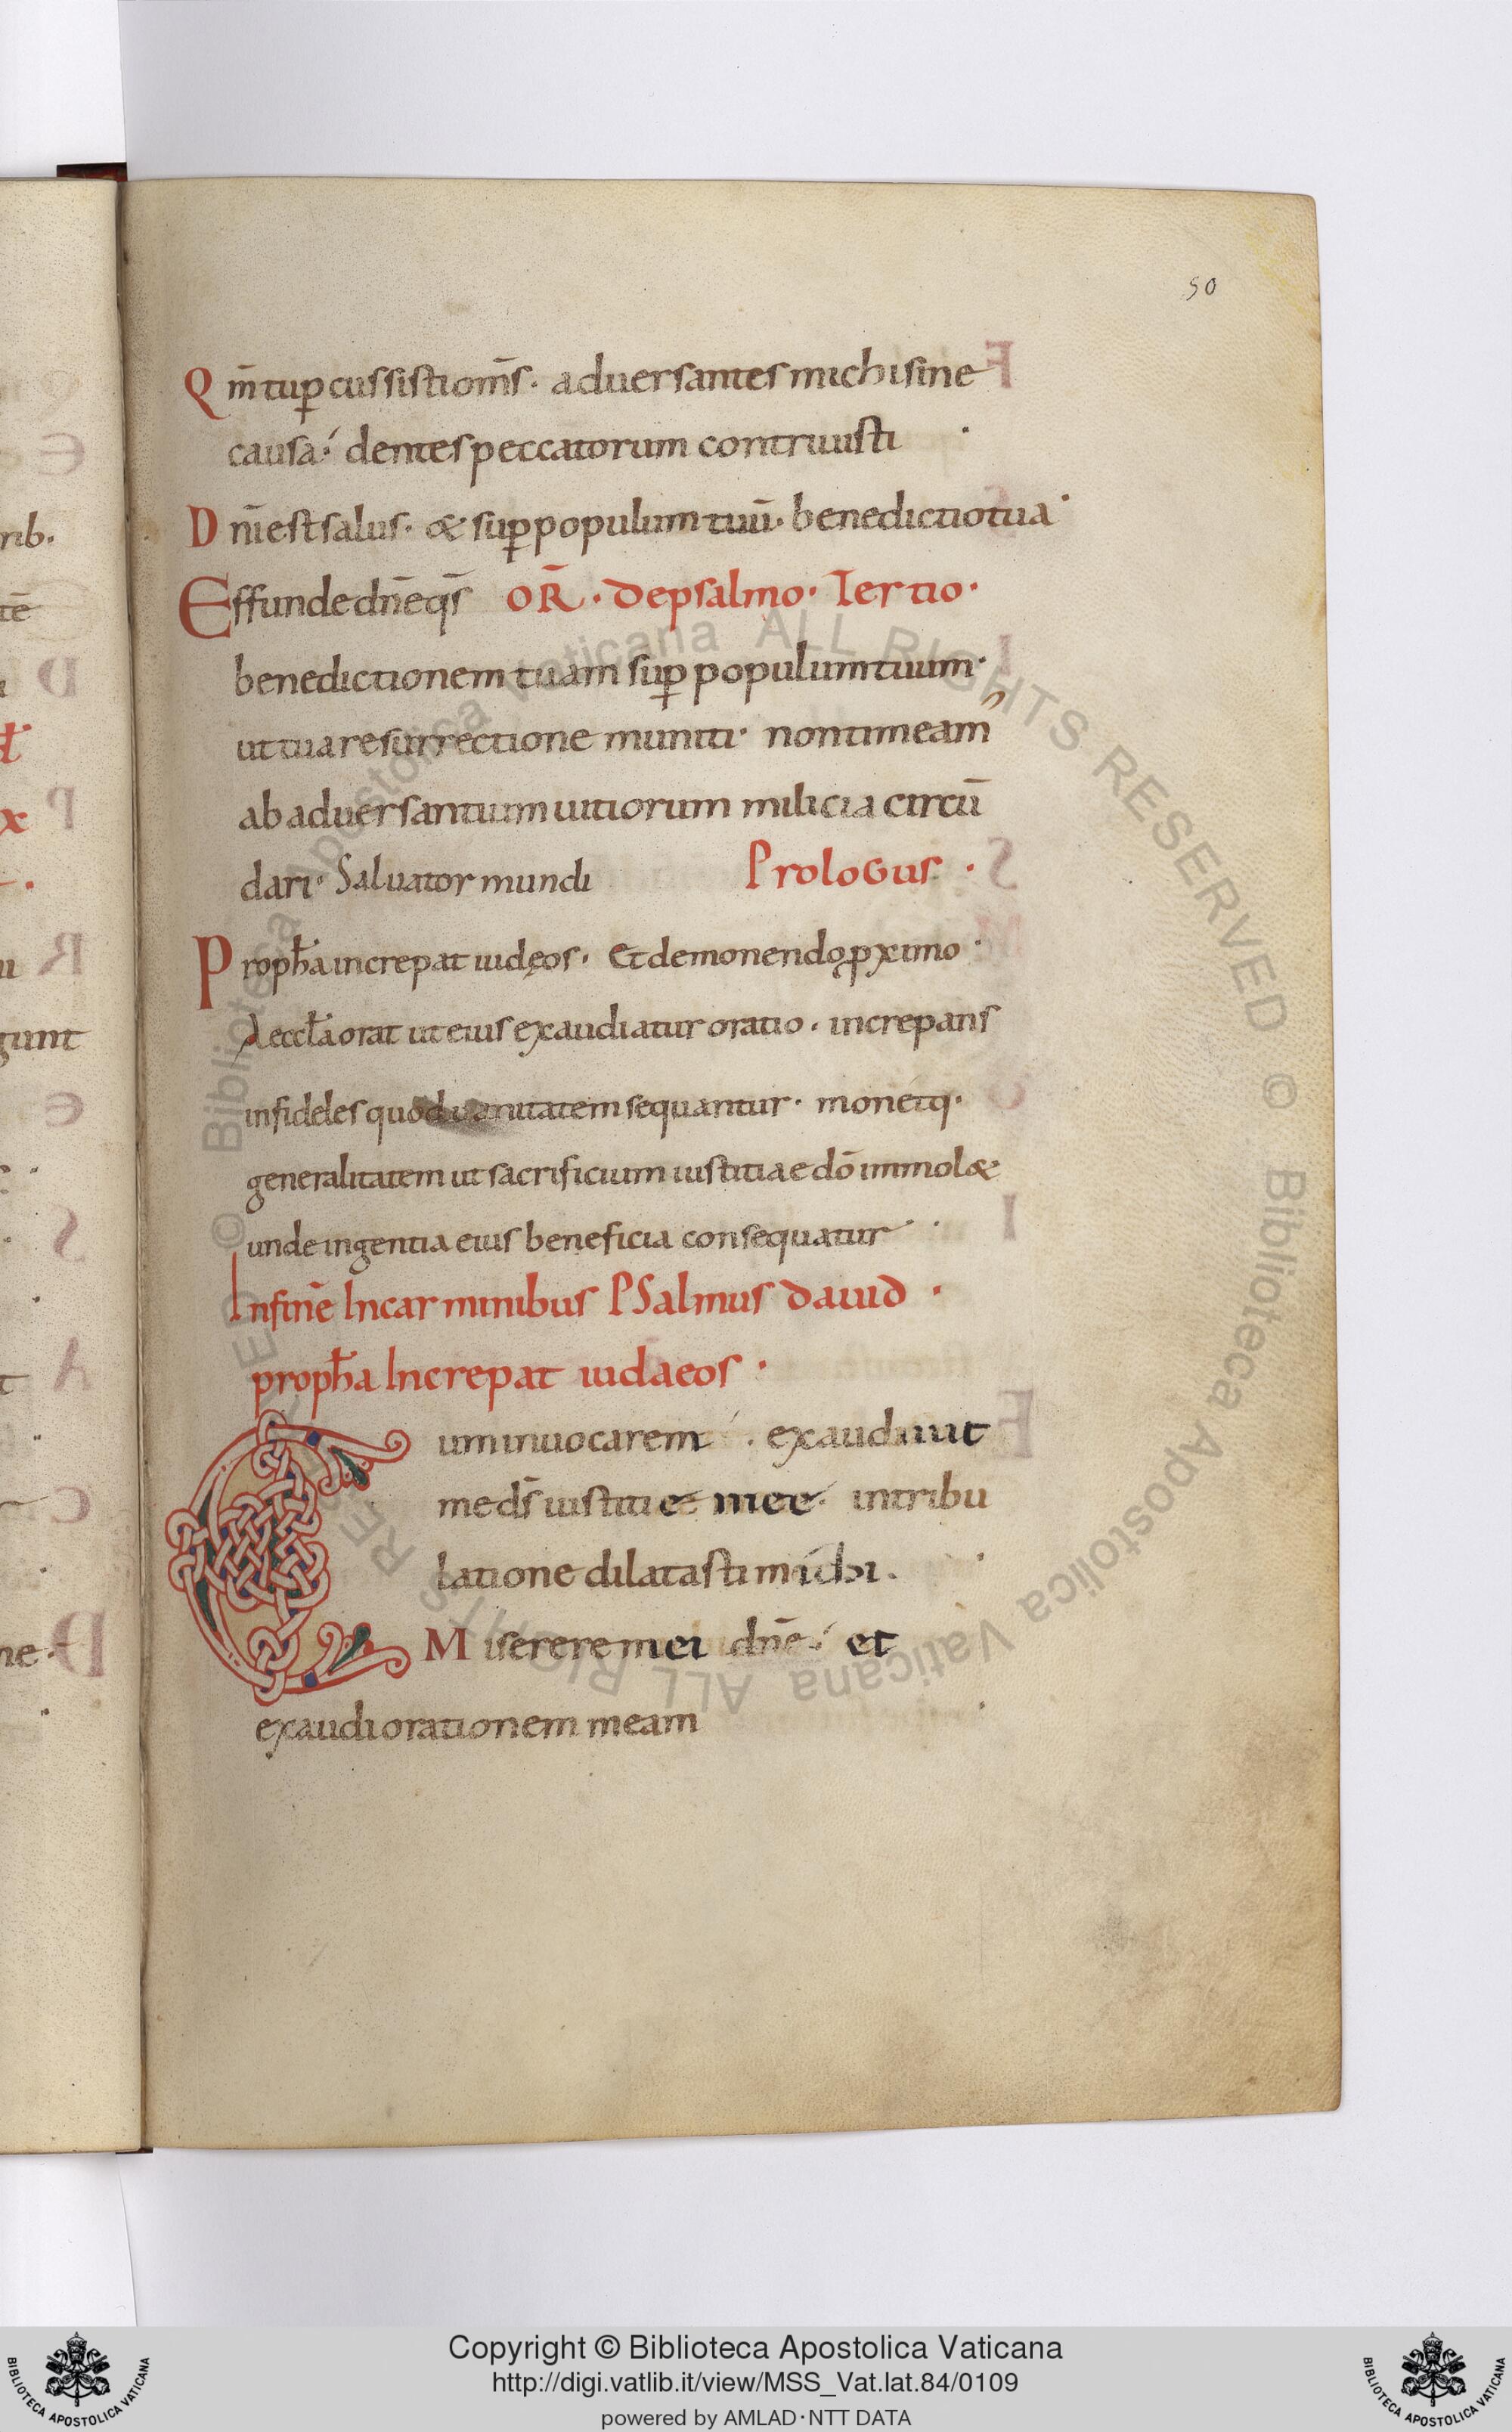 50
Qm̄ tu ꝑcussisti om̄s · aduersantes michi sine
causa · dentes peccatorum contriuisti ·
Dn̄i est salus · & suꝑ populum tuū · benedictio tua ·
Effunde dn̄e q̄s OR̄ · De psalmo · Tertio ·
benedictionem tuam suꝑ populum tuum ·
ut tua resurrectione muniti · non timeam
ab aduersantium uitiorum milicia circū
dari · Saluator mundi Prologus ·
Proph̄a increpat iudęos · Et de monendo ꝓximo ·
Aeccl̄a orat ut eius exaudiatur oratio · increpans
infideles quod uanitatem sequantur · monetq·
generalitatem ut sacrificium iustitiae dō immol&
unde ingentia eius beneficia consequatur ·
In fine In carminibus PSalmus dauid ·
proph̄a Increpat iudaeos ·
Cum inuocarem · exaudiuit
me ds̄ iustitie mee · in tribu
latione dilatasti michi ·
Miserere mei dn̄e · et
exaudi orationem meam ·
© Biblioteca Apostolica Vaticana ALL RIGHTS RESERVED
© Biblioteca Apostolica Vaticana ALL RIGHTS RESERVED
Copyright © Biblioteca Apostolica Vaticana
http://digi.vatlib.it/view/MSS_Vat.lat.84/0109
powered by AMLAD·NTT DATA
BIBLIOTECA APOSTOLICA VATICANA
BIBLIOTECA APOSTOLICA VATICANA